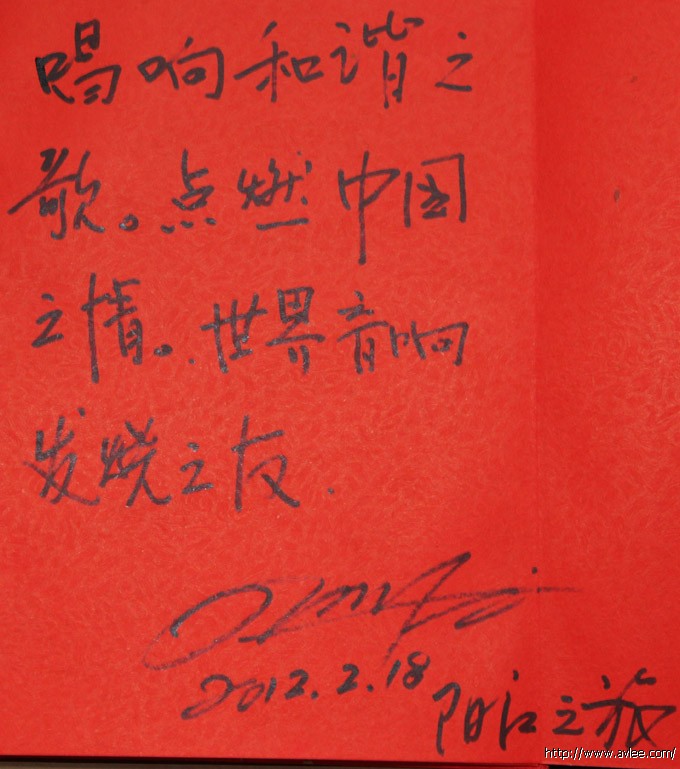 唱响和谐之
歌。点燃中国
之情。世界音响
发烧之友.
2012.2.18
阳江之旅
http://www.avlee.com/